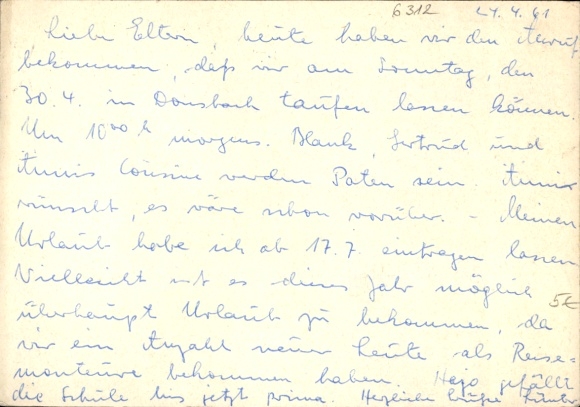 6312 24.4.61
Liebe Eltern, heute haben wir den Anruf
bekommen, daß wir am Sonntag, den
30.4. in Donsbach taufen lassen können.
Um 10⁰⁰ h morgens. Blank, Gertrud und
Annis Cousine werden Paten sein. Anni
wünscht, es wäre schon vorüber. – Meinen
Urlaub habe ich ab 17.7. eintragen lassen
Vielleicht ist es dieses Jahr möglich
5€
überhaupt Urlaub zu bekommen, da
wir ein Anzahl neuer Leute als Reise-
monteure bekommen haben. Hajo gefällt
die Schule bis jetzt prima. Herzliche Grüße